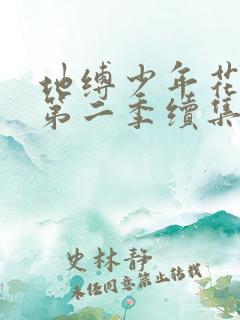 地缚少年花
第二季续集
史林静
未经同意禁止转载